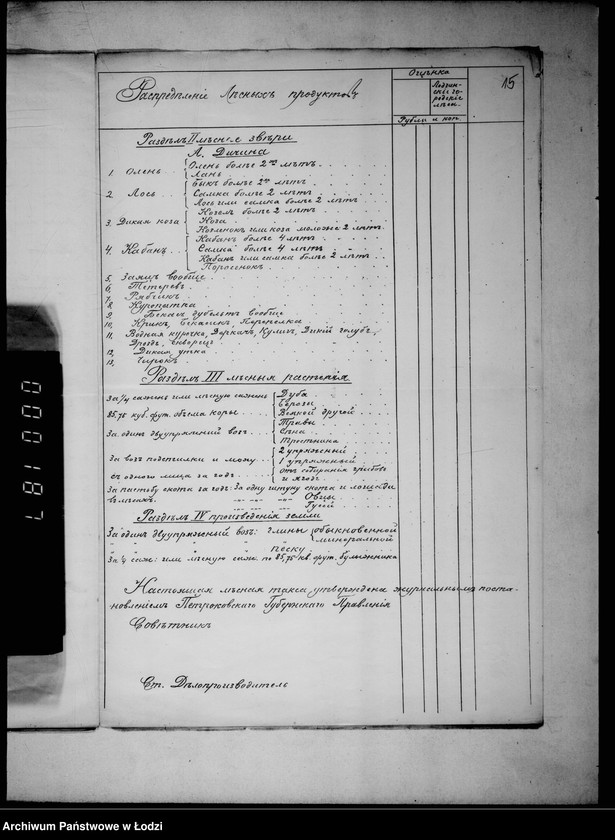 Распредѣленіе Лѣсныхъ продуктовъ
Оцѣнка
15
Рубли и коп.
Раздѣлъ II лѣсные звѣри
А. Дичина
1. Олень Олень болѣе 2хъ лѣтъ
Лань
Быкъ болѣе 2хъ лѣтъ
2. Лось Самка болѣе 2 лѣтъ
Лось или самка болѣе 2 лѣтъ
3. Дикая коза Козелъ болѣе 2 лѣтъ
Коза
Козленокъ или коза моложе 2 лѣтъ
4. Кабанъ Кабанъ болѣе 4 лѣтъ
Самка болѣе 4 лѣтъ
Кабанъ или самка болѣе 2 лѣтъ
Поросенокъ
5. Заяцъ вообще
6. Тетеревъ
7. Рябчикъ
8. Куропатка
9. Бекасъ дубельтъ вообще
10. Крикъ, Бекасикъ, Перепелка
11. Водная курочка, Деркачъ, Куликъ, Дикій голубь,
Дроздъ, скворецъ
12. Дикая утка
13. Чирокъ
Раздѣлъ III лѣсныя растенія
За ¼ сажень или лѣсную сажень Дуба
Березы
85,75 куб. фут. объема коры Всякой другой
Травы
За одинъ двуупряжный возъ Сѣна
Тростника
2 упряжный
За возъ подстилки и моху 1 упряжный
съ одного лица за годъ отъ собиранія грибовъ
и ягодъ
За пастьбу скота за годъ: За одну штуку скота и лошади
въ лѣсахъ " " " Овцы
" " " Гусей
Раздѣлъ IV произведенія земли
За одинъ двуупряжный возъ: глины обыкновенной
минеральной
песку
За ¼ саж: или лѣсную саж. по 85,75/кв. фут. булыжника
Настоящая лѣсная такса утверждена журнальнымъ поста-
новленіемъ Петроковскаго Губернскаго Правленія
Совѣтникъ
Ст. Дѣлопроизводитель
000 187
Archiwum Państwowe w Łodzi